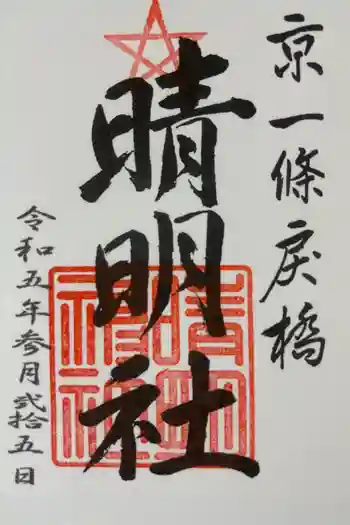 京一條戻橋
晴明社
令和五年参月弐拾五日
晴明神社